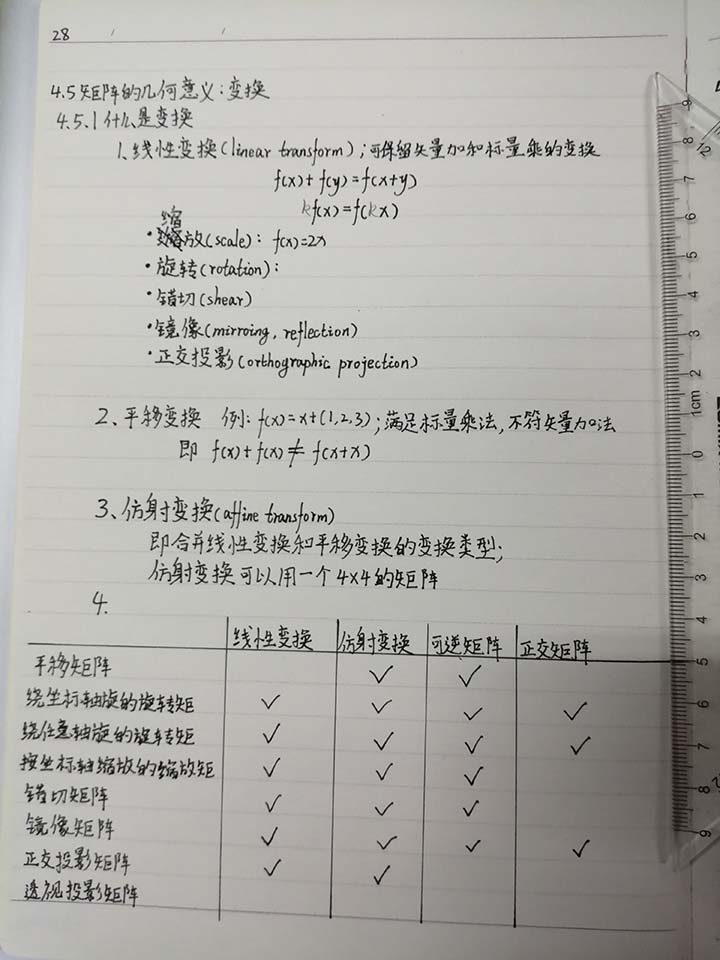 28
4.5 矩阵的几何意义:变换
4.5.1 什么是变换
1、线性变换(linear transform);可保留矢量加和标量乘的变换
f(x)+f(y)=f(x+y)
kf(x)=f(kx)
缩
·缩放(scale): f(x)=2x
·旋转(rotation):
·错切(shear)
·镜像(mirroing, reflection)
·正交投影(orthographic projection)
2、平移变换 例: f(x)=x+(1,2,3);满足标量乘法,不符矢量加法
即 f(x)+f(x)≠f(x+x)
3、仿射变换(affine transform)
即合并线性变换和平移变换的变换类型;
仿射变换可以用一个4×4的矩阵
4.
线性变换 仿射变换 可逆矩阵 正交矩阵
平移矩阵 ✓ ✓
绕坐标轴旋的旋转矩 ✓ ✓ ✓ ✓
绕任意轴旋的旋转矩 ✓ ✓ ✓ ✓
按坐标轴缩放的缩放矩 ✓ ✓ ✓
错切矩阵 ✓ ✓ ✓
镜像矩阵 ✓ ✓ ✓ ✓
正交投影矩阵 ✓ ✓
透视投影矩阵
9
8
7
6
5
4
3
2
1cm
0
1
2
3
4
5
6
7
8
9